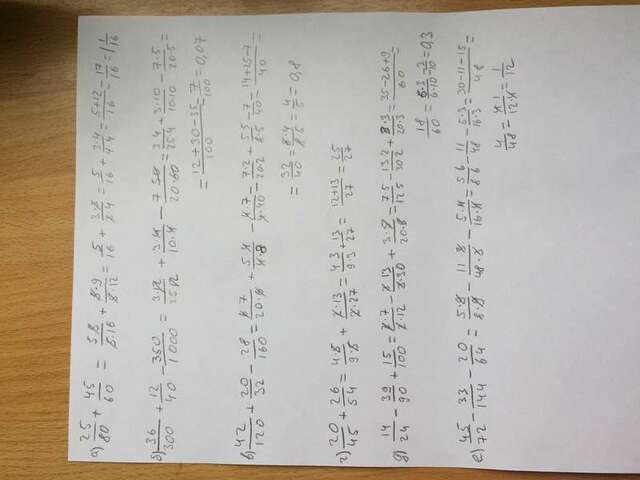 а) 25/80 + 45/60 = 5·5/5·16 + 5·9/5·12 = 5/16 + 3·3/3·4 = 5/16 + 3·4/4·4 = 5+12/16 = 17/16 = 1 1/16
б) 36/300 + 12/40 - 350/1000 = 3·12/25·12 + 3·4/10·4 - 7·50/20·50 = 3·4/25·4 + 3·10/10·10 - 7·5/20·5 =
= 12+30-35/100 = 7/100 = 0,07
в) 42/120 + 20/32 - 28/160 = 6·7/20·6 + 5·4/4·8 - 4·7/4·40 = 7·2/20·2 + 5·5/8·5 - 7/40 = 14+25-7/40 =
= 32/40 = 8·4/8·5 = 4/5 = 0,8
г) 20/45 + 26/54 = 4·5/9·5 + 2·13/2·27 = 4·3/9·3 + 13/27 = 12+13/27 = 25/27
д) 14/24 - 39/90 + 15/100 = 2·7/2·12 - 3·13/3·30 + 3·5/20·5 = 7·5/12·5 - 13·2/30·2 + 3·3/20·3 = 35-26+9/60 =
18/60 = 6·3/6·10 = 3/10 = 0,3
е) 45/72 - 33/144 - 20/64 = 5·9/8·9 - 11·3/48·3 - 5·4/16·4 = 5·6/8·6 - 11/48 - 5·3/16·3 = 30-11-15/48 =
4/48 = 4·1/12·4 = 1/12